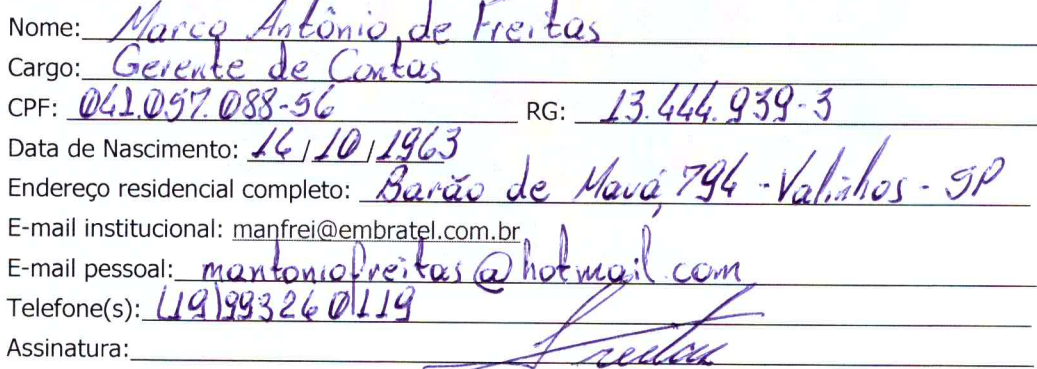 Nome: Marco Antônio de Freitas
Cargo: Gerente de Contas
CPF: 041.057.088-56 RG: 13.444.939-3
Data de Nascimento: 16/10/1963
Endereço residencial completo: Barão de Mauá, 794 - Valinhos - SP
E-mail institucional: manfrei@embratel.com.br
E-mail pessoal: mantoniofreitas@hotmail.com
Telefone(s): (19)993260119
Assinatura: Freitas